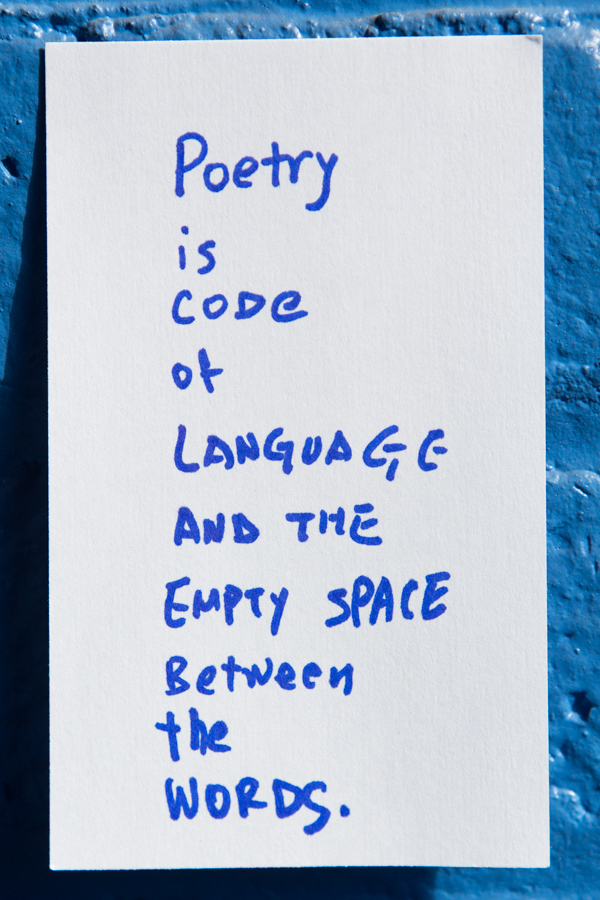 Poetry
is
CODe
of
LANGUAGE
AND THE
EMPTY SPACE
Between
the
WORDS.